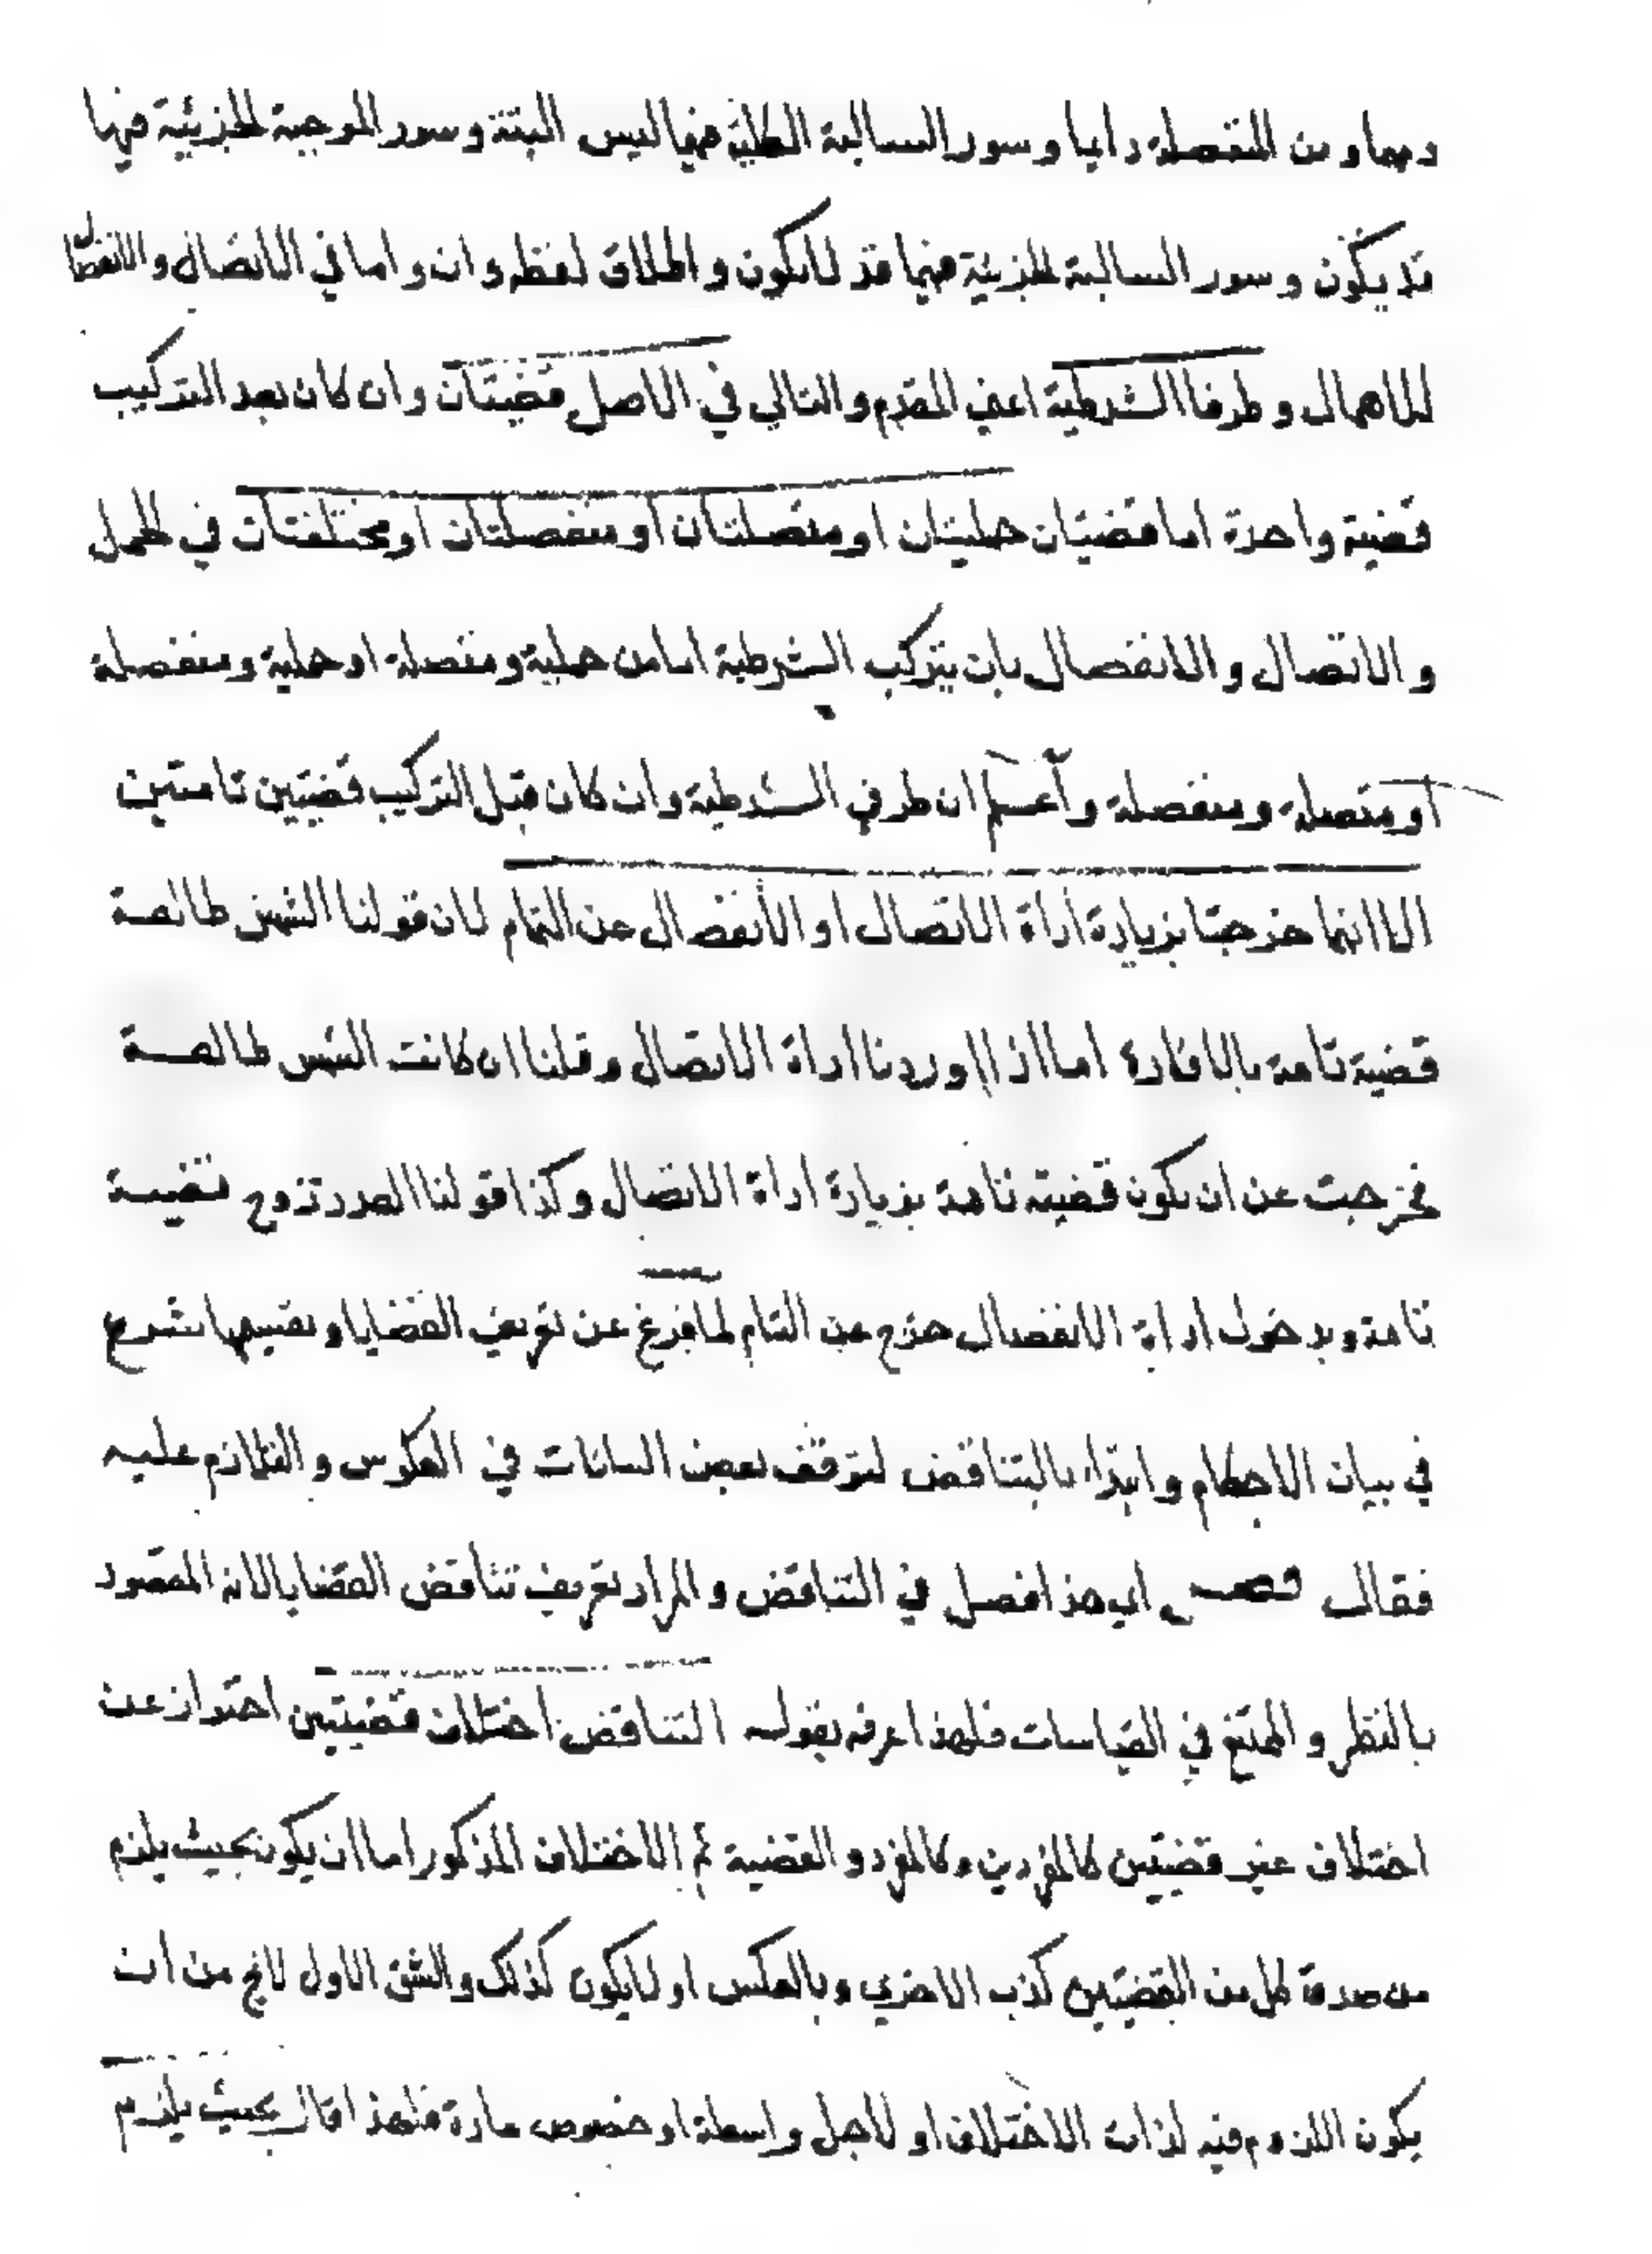 ومهما ومن المنفصلة دايما وسور السالبة الكلية فيهما ليس البتة وسور الموجبة الجزئية فيهما
قد يكون وسور السالبة الجزئية فيهما قد لا يكون واطلاق لفظه وان واما في الاتصال والانفصال
للاهمال وطرفا الشرطية اعني المقدم والتالي في الاصل قضيتان وان كان بعد التركيب
قضية واحدة اما قضيتان حمليتان او متصلتان او منفصلتان او مختلفتان في الحمل
والاتصال والانفصال بان يتركب الشرطية اما من حملية ومتصلة او حملية ومنفصلة
او متصلة ومنفصلة واعلم ان طرفي الشرطية وان كان قبل التركيب قضيتين تامتين
الا انهما خرجتا بزيادة اداة الاتصال او الانفصال عن التمام لان قولنا الشمس طالعة
قضية تامة بالافادة اما اذا اوردنا اداة الاتصال وقلنا ان كانت الشمس طالعة
فخرجت عن ان يكون قضية تامة بزيادة اداة الاتصال وكذا قولنا العدد زوج قضية
تامة وبدخول اداة الانفصال خرج عن التمام لما فرغ عن تعريف القضايا وتقسيمها شرع
في بيان الاحكام وابتداء بالتناقض لتوقف بعض البيانات في العكوس والتلازم عليه
فقال فصل اي هذا فصل في التناقض والمراد تعريف تناقض القضايا لانه المقصود
بالنظر والمنتفع في القياسات فلهذا عرفه بقوله التناقض اختلاف قضيتين احتراز عن
اختلاف غير قضيتين كالمفردين وكالمفرد والقضية ثم الاختلاف المذكور اما ان يكون بحيث يلزم
من صدق كل من القضيتين كذب الاخري وبالعكس او لا يكون كذلك والشق الاول لا يخ من ان
يكون اللزوم فيه لذات الاختلاف او لاجل واسطة او خصوص مادة فلهذا قال بحيث يلزم